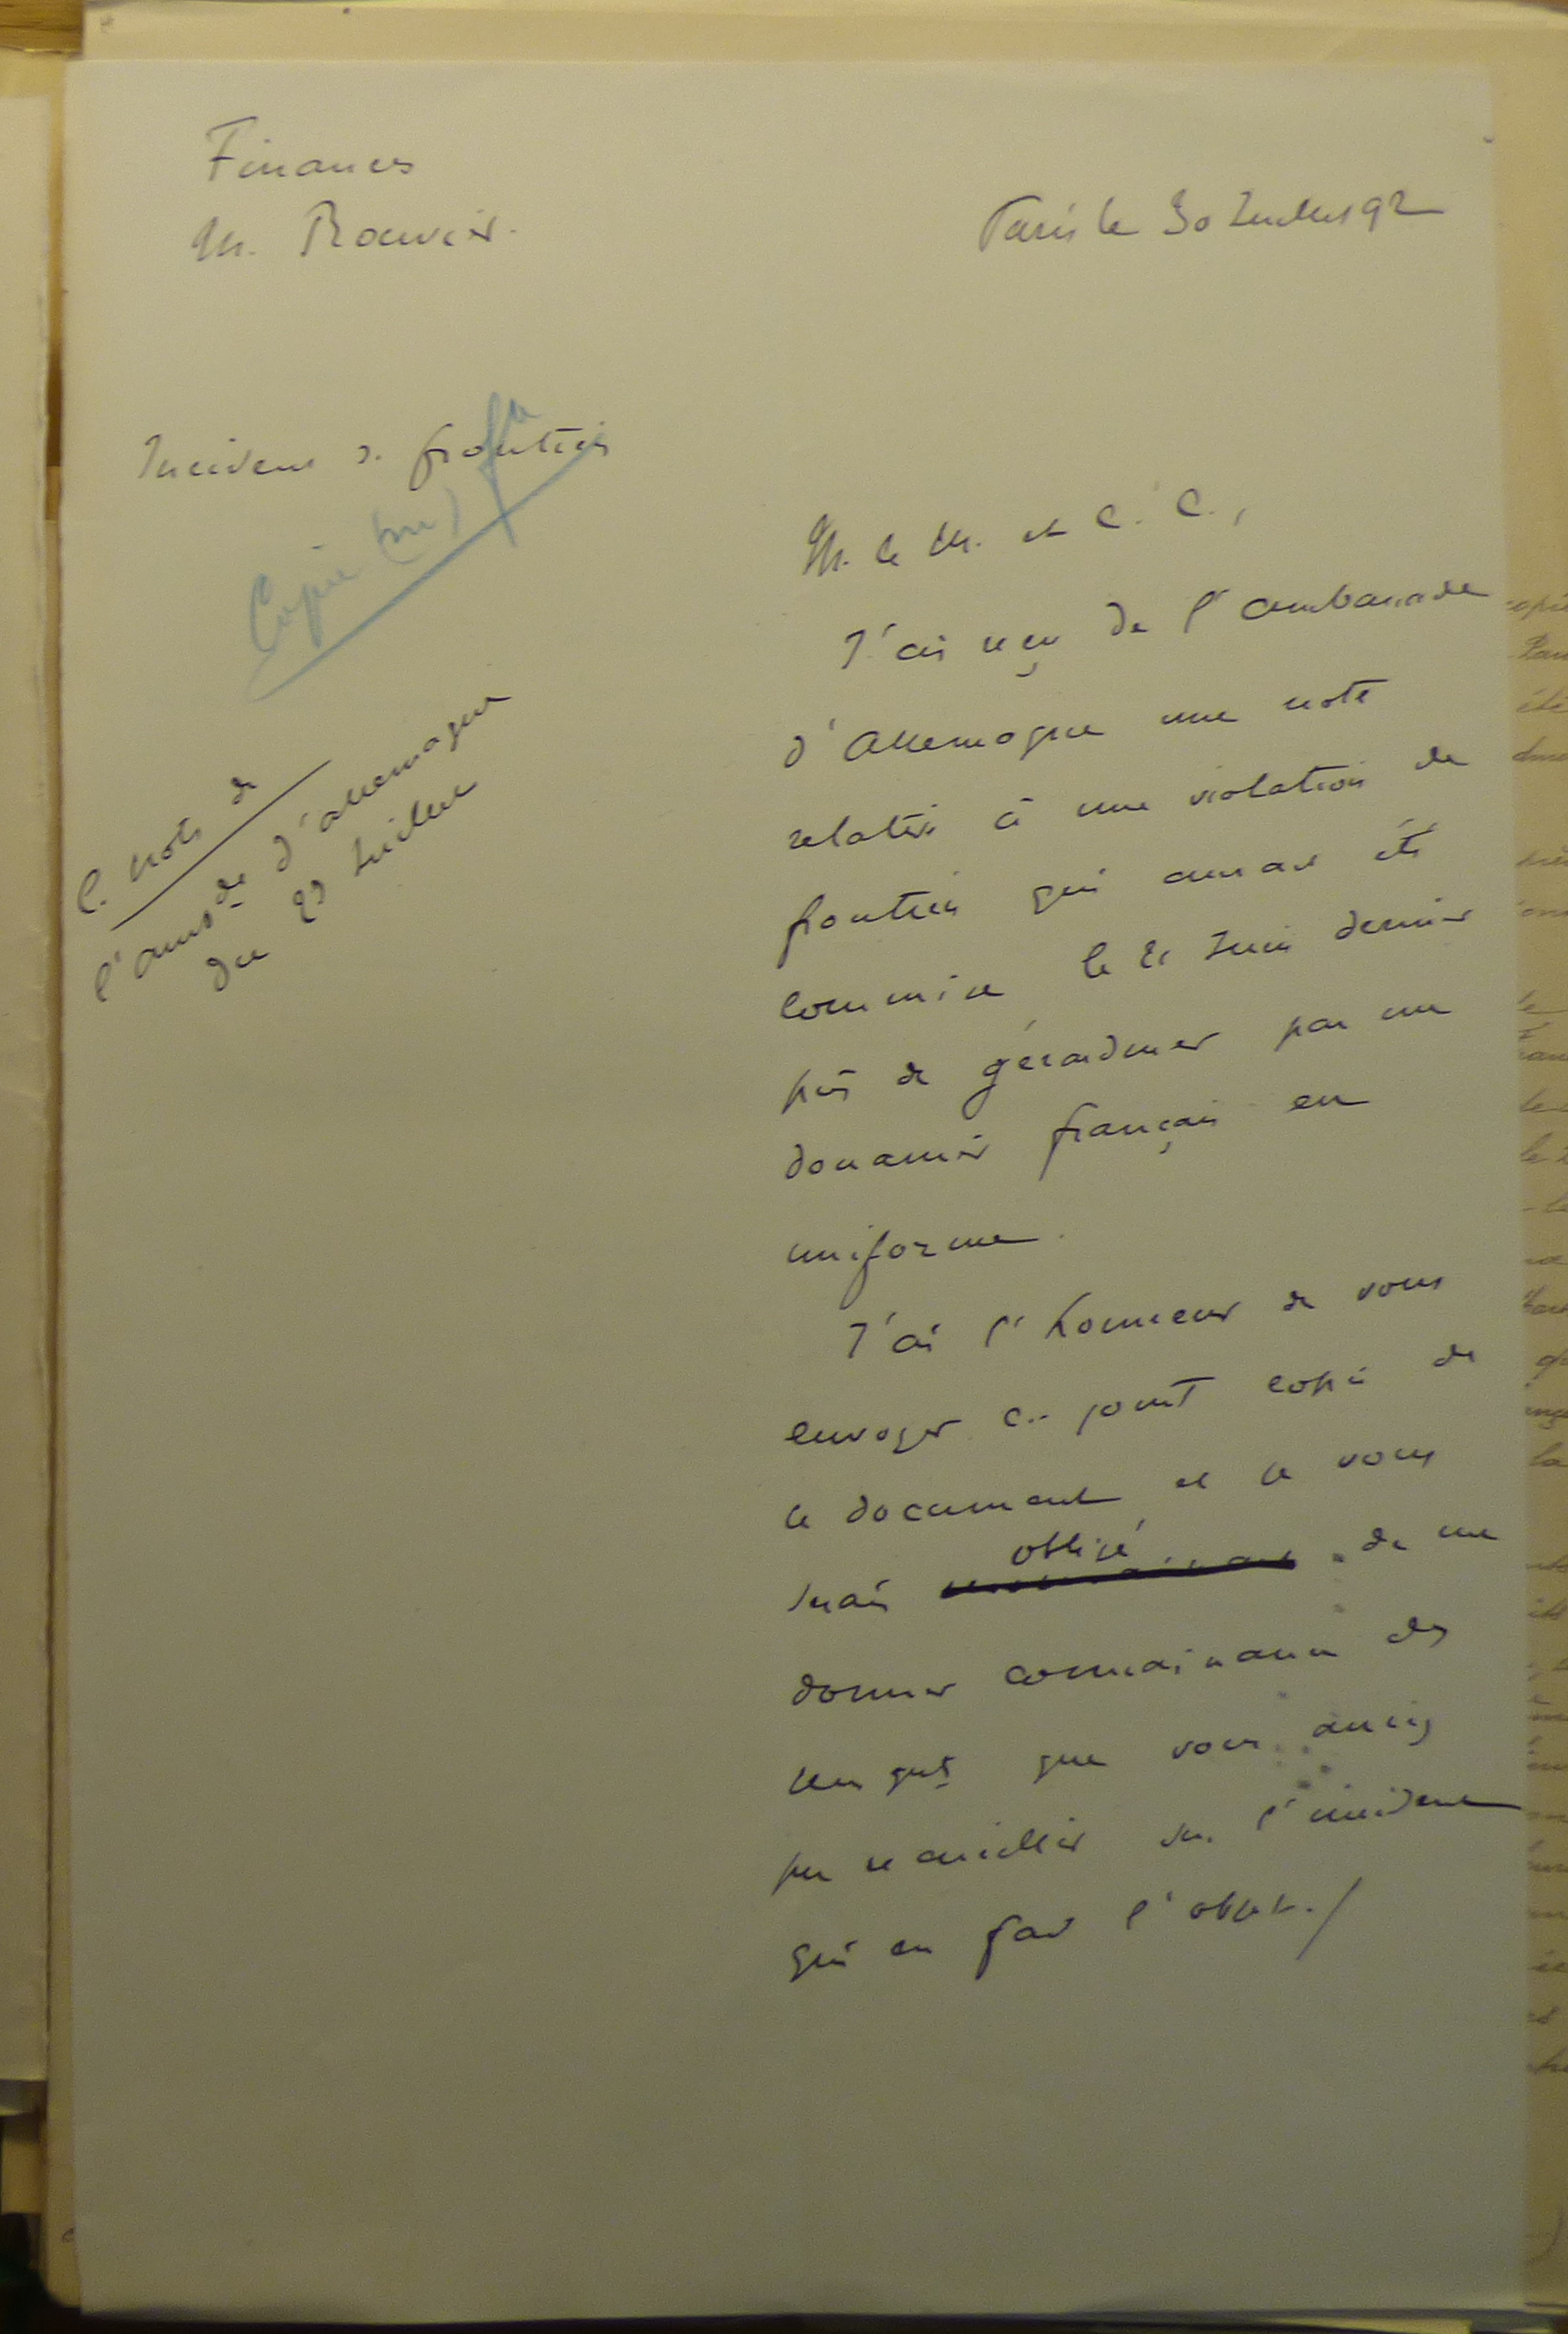 Finances
M. Rouvier.
Paris le 30 Juillet 92
Incident de frontière
Copie
C. note de
l'amb^de d'Allemagne
du 29 Juillet
M. le M. et C. C.,
J'ai reçu de l'ambassade
d'Allemagne une note
relative à une violation de
frontière qui aurait été
commise le 21 Juin dernier
près de Gérardmer par un
douanier français en
uniforme.
J'ai l'honneur de vous
envoyer ci-joint copie de
ce document et je vous
serais obligé de me
donner connaissance des
rens gnts que vous auriez
pu recueillir sur l'incident
qui en fait l'objet./